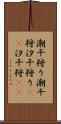 潮干狩り潮干
狩汐干狩り
汐干狩